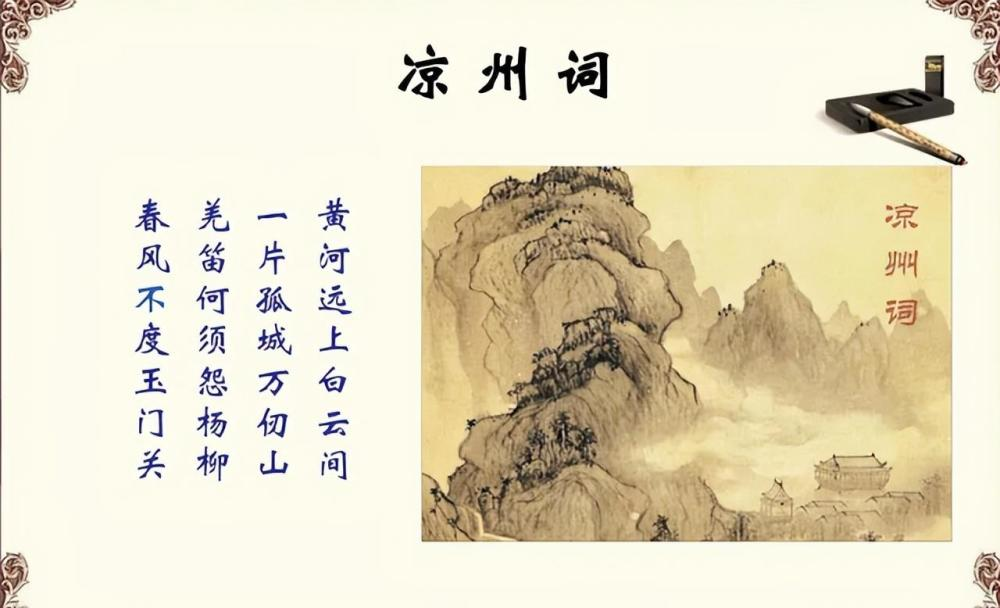 凉州词
黄河远上白云间
一片孤城万仞山
羌笛何须怨杨柳
春风不度玉门关
凉州词